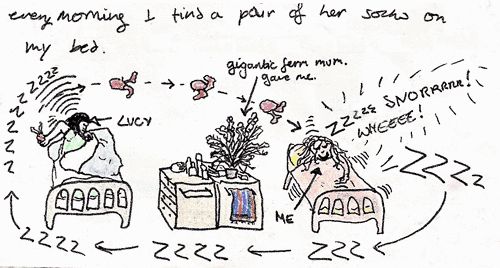 every morning I find a pair of her socks on
my bed.
gigantic fern mum
gave me.
LUCY
ZZZZZ
ZZZZZ SNORRRRR!
WHEEEE!
ZZZZZ
ME
ZZZ
ZZZZ
ZZZZ
Z
Z
Z
Z